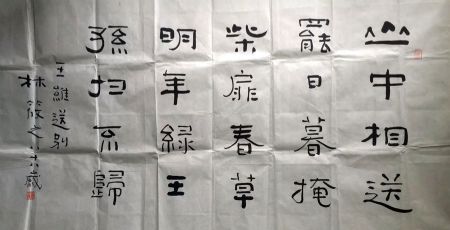 山中相送
罷日暮掩
柴扉春草
明年緑王
孫归不歸
王維送别
林筱之歲